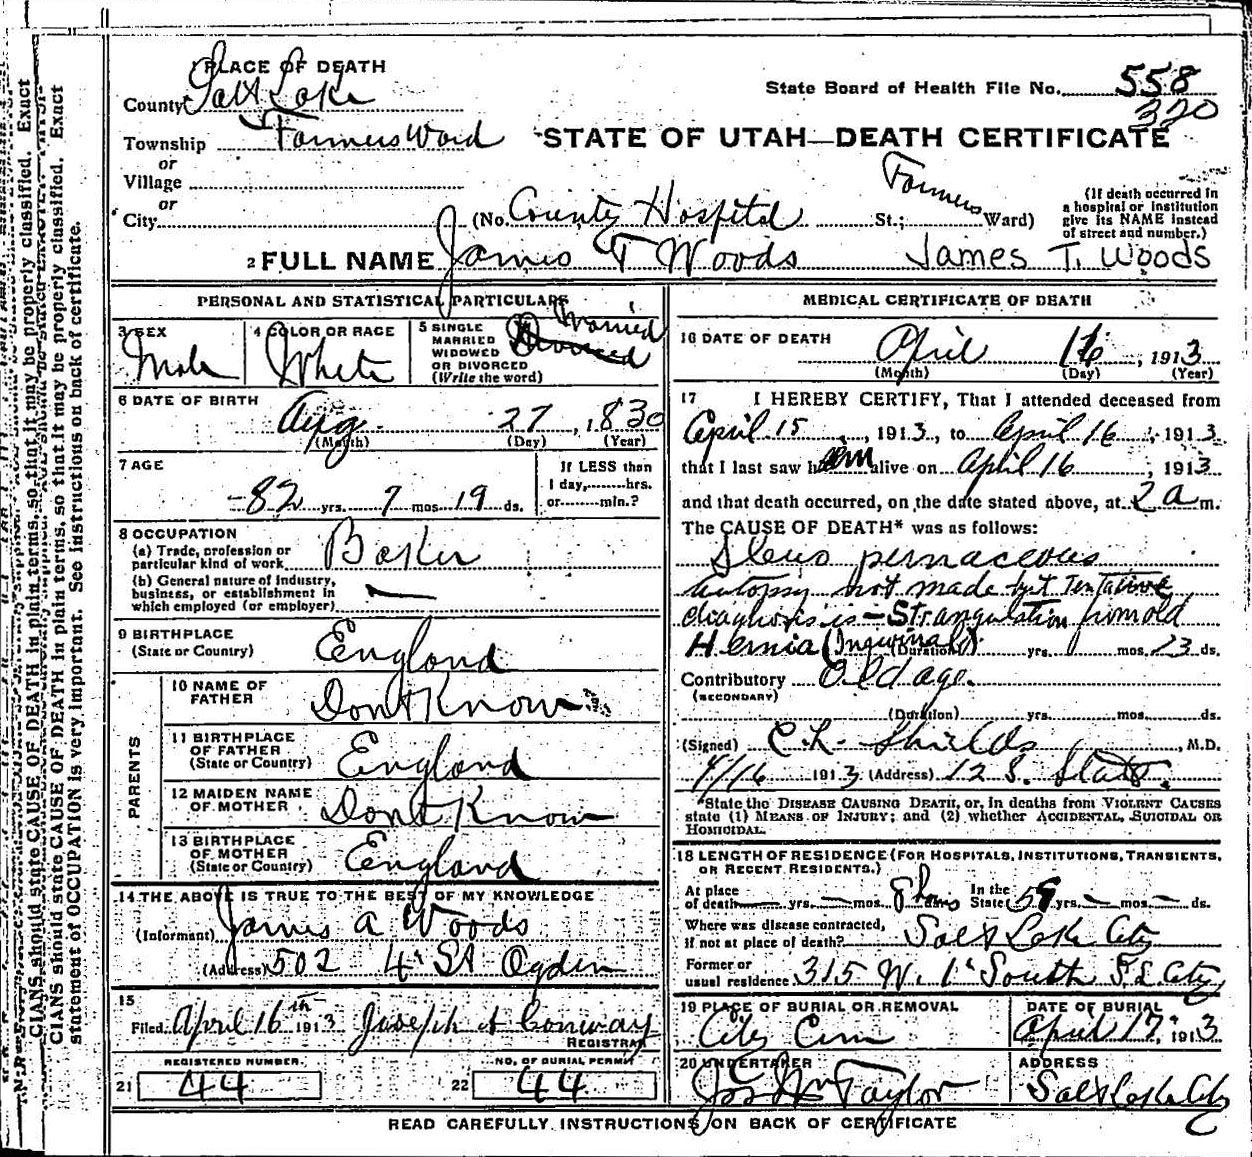 1 PLACE OF DEATH
County Salt Lake
State Board of Health File No. 558
320
Township Farmers Ward
STATE OF UTAH—DEATH CERTIFICATE
or
Village
or
City (No. County Hospital St.; Farmers Ward)
(If death occurred in a hospital or institution give its NAME instead of street and number.)
2 FULL NAME James T Woods James T. Woods
PERSONAL AND STATISTICAL PARTICULARS
3 SEX
Male
4 COLOR OR RACE
White
5 SINGLE
MARRIED
WIDOWED
OR DIVORCED
(Write the word)
Married
Divorced
6 DATE OF BIRTH
Aug. 27, 1830
(Month) (Day) (Year)
7 AGE
82 yrs. 7 mos. 19 ds.
If LESS than
1 day, hrs.
or min.?
8 OCCUPATION
(a) Trade, profession or
particular kind of work Baker
(b) General nature of industry,
business, or establishment in
which employed (or employer) —
9 BIRTHPLACE
(State or Country) England
PARENTS
10 NAME OF
FATHER Dont Know
11 BIRTHPLACE
OF FATHER
(State or Country) England
12 MAIDEN NAME
OF MOTHER Dont Know
13 BIRTHPLACE
OF MOTHER
(State or Country) England
14 THE ABOVE IS TRUE TO THE BEST OF MY KNOWLEDGE
(Informant) James A Woods
(Address) 502 4' St Ogden
15
Filed April 16th 1913 Joseph A Conway
REGISTRAR
REGISTERED NUMBER
21 44
NO. OF BURIAL PERMIT
22 44
MEDICAL CERTIFICATE OF DEATH
16 DATE OF DEATH
April 16, 1913
(Month) (Day) (Year)
17 I HEREBY CERTIFY, That I attended deceased from
April 15, 1913, to April 16, 1913
that I last saw him alive on April 16, 1913
and that death occurred, on the date stated above, at 2 a m.
The CAUSE OF DEATH* was as follows:
Ileus pernaceous
autopsy not made but tentative
diagnosis is — Strangulation from old
Hernia (Inguinal) (Duration) yrs. mos. 23 ds.
Contributory Old age.
(SECONDARY)
(Duration) yrs. mos. ds.
(Signed) C. L. Shields, M.D.
4/16 1913 (Address) 12 S. State.
*State the DISEASE CAUSING DEATH, or, in deaths from VIOLENT CAUSES
state (1) MEANS OF INJURY; and (2) whether ACCIDENTAL, SUICIDAL OR
HOMICIDAL.
18 LENGTH OF RESIDENCE (FOR HOSPITALS, INSTITUTIONS, TRANSIENTS,
OR RECENT RESIDENTS.)
At place
of death — yrs. — mos. 8 hrs In the State 59 yrs. — mos. — ds.
Where was disease contracted,
if not at place of death? Salt Lake City
Former or
usual residence 315 W. 1' South S. L. City
19 PLACE OF BURIAL OR REMOVAL
City Cem
DATE OF BURIAL
April 17, 1913
20 UNDERTAKER
Jos Wm Taylor
ADDRESS
Salt Lake City
READ CAREFULLY INSTRUCTIONS ON BACK OF CERTIFICATE
CIANS should state CAUSE OF DEATH in plain terms, so that it may be properly classified. Exact
statement of OCCUPATION is very important. See instructions on back of certificate.